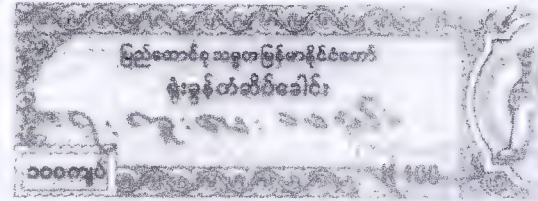 ပြည်ထောင်စု သမ္မတမြန်မာနိုင်ငံတော်
ရုံးခွန်တံဆိပ်ခေါင်း
၁၀၀ကျပ်